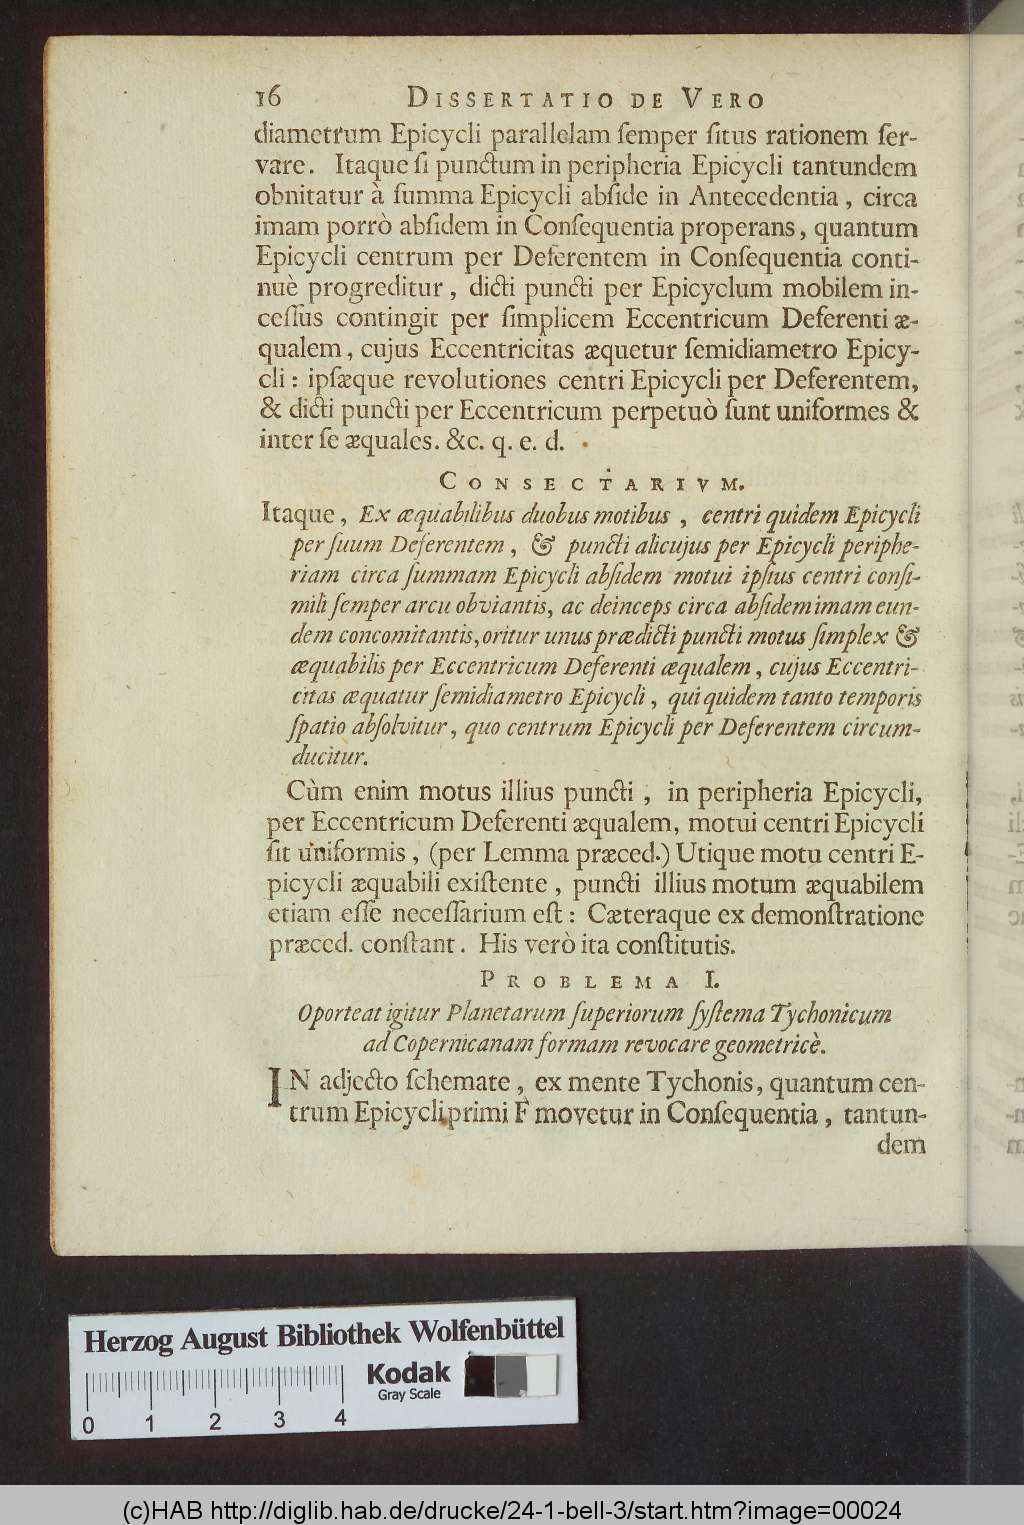 16 DISSERTATIO DE VERO
diametrum Epicycli parallelam ſemper ſitus rationem ſer-
vare. Itaque ſi punctum in peripheria Epicycli tantundem
obnitatur à ſumma Epicycli abſide in Antecedentia, circa
imam porrò abſidem in Conſequentia properans, quantum
Epicycli centrum per Deferentem in Conſequentia conti-
nuè progreditur, dicti puncti per Epicyclum mobilem in-
ceſſus contingit per ſimplicem Eccentricum Deferenti æ-
qualem, cujus Eccentricitas æquetur ſemidiametro Epicy-
cli: ipſæque revolutiones centri Epicycli per Deferentem,
& dicti puncti per Eccentricum perpetuò ſunt uniformes &
inter ſe æquales. &c. q. e. d.
CONSECTARIVM.
Itaque, Ex æquabilibus duobus motibus, centri quidem Epicycli
per ſuum Deferentem, & puncti alicujus per Epicycli periphe-
riam circa ſummam Epicycli abſidem motui ipſius centri conſi-
mili ſemper arcu obviantis, ac deinceps circa abſidem imam eun-
dem concomitantis, oritur unus prædicti puncti motus ſimplex &
æquabilis per Eccentricum Deferenti æqualem, cujus Eccentri-
citas æquatur ſemidiametro Epicycli, qui quidem tanto temporis
ſpatio abſolvitur, quo centrum Epicycli per Deferentem circum-
ducitur.
Cùm enim motus illius puncti, in peripheria Epicycli,
per Eccentricum Deferenti æqualem, motui centri Epicycli
ſit uniformis, (per Lemma præced.) Utique motu centri E-
picycli æquabili exiſtente, puncti illius motum æquabilem
etiam eſſe neceſſarium eſt: Cæteraque ex demonſtratione
præced. conſtant. His verò ita conſtitutis.
PROBLEMA I.
Oporteat igitur Planetarum ſuperiorum ſyſtema Tychonicum
ad Copernicanam formam revocare geometricè.
IN adjecto ſchemate, ex mente Tychonis, quantum cen-
trum Epicycli primi F movetur in Conſequentia, tantun-
dem
Herzog August Bibliothek Wolfenbüttel
Kodak
Gray Scale
0 1 2 3 4
(c)HAB http://diglib.hab.de/drucke/24-1-bell-3/start.htm?image=00024